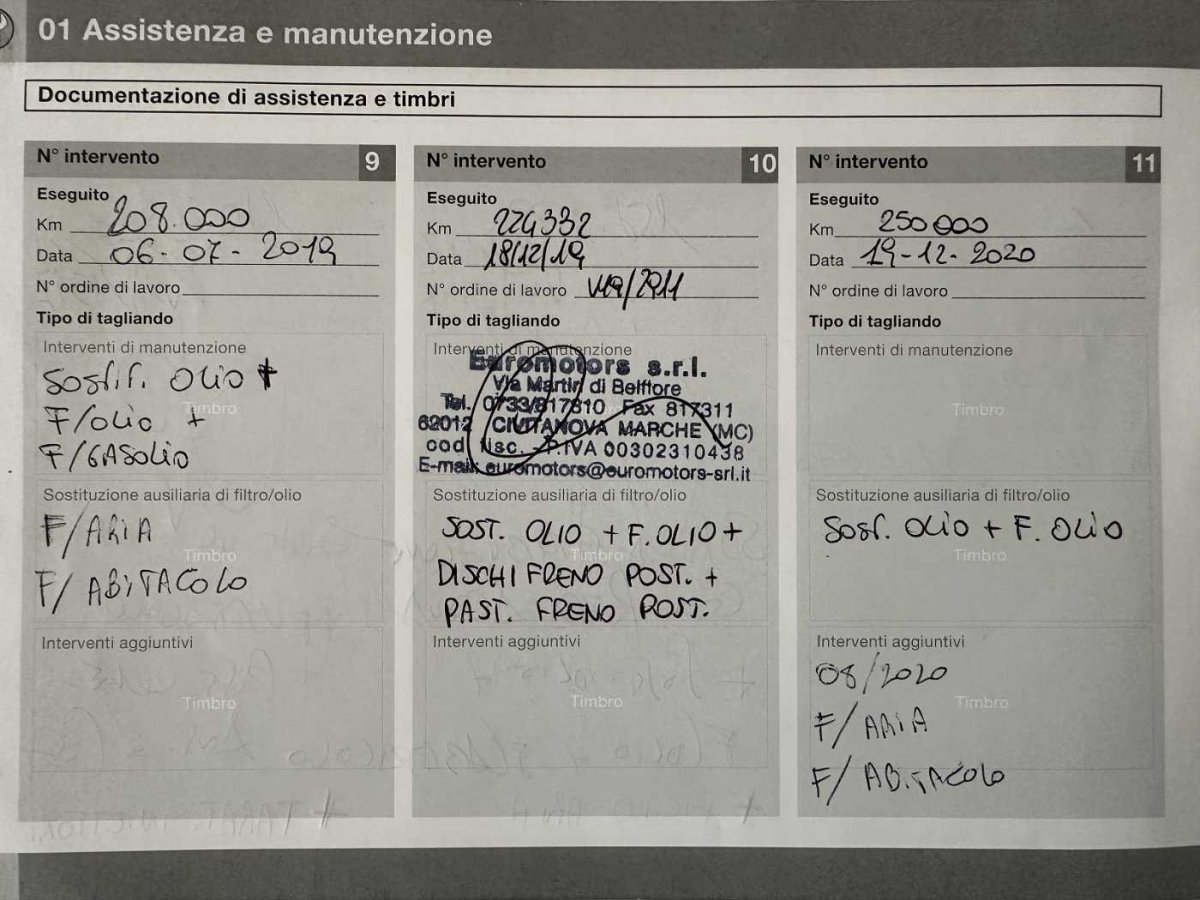 01 Assistenza e manutenzione
Documentazione di assistenza e timbri
N° intervento 9
Eseguito
Km 208.000
Data 06-07-2019
N° ordine di lavoro
Tipo di tagliando
Interventi di manutenzione
SOST. OLIO +
Timbro
F/OLIO +
F/GASOLIO
Sostituzione ausiliaria di filtro/olio
F/ARIA
Timbro
F/ABITACOLO
Interventi aggiuntivi
Timbro
N° intervento 10
Eseguito
Km 224332
Data 18/12/19
N° ordine di lavoro
Tipo di tagliando
Interventi di manutenzione
Euromotors s.r.l.
Via Martiri di Belfiore
Tel. 0733/817810 Fax 817311
62012 CIVITANOVA MARCHE (MC)
cod. fisc. - P.IVA 00302310438
E-mail: euromotors@euromotors-srl.it
Sostituzione ausiliaria di filtro/olio
SOST. OLIO + F.OLIO +
Timbro
DISCHI FRENO POST. +
PAST. FRENO POST.
Interventi aggiuntivi
Timbro
N° intervento 11
Eseguito
Km 250000
Data 19-12-2020
N° ordine di lavoro
Tipo di tagliando
Interventi di manutenzione
Timbro
Sostituzione ausiliaria di filtro/olio
SOST. OLIO + F. OLIO
Timbro
Interventi aggiuntivi
08/2020
Timbro
F/ARIA
F/ABITACOLO